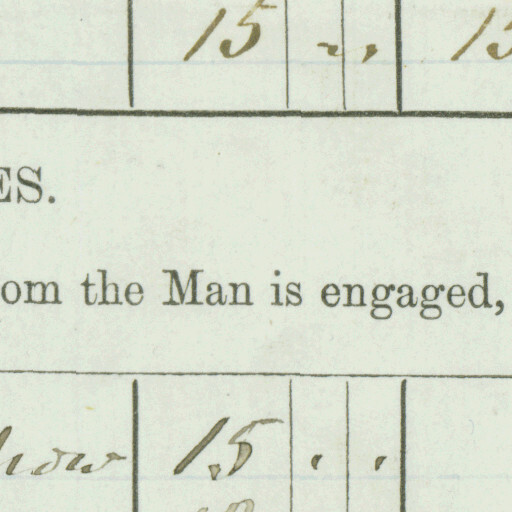 15 " " 15
ES.
om the Man is engaged,
how 15 " "